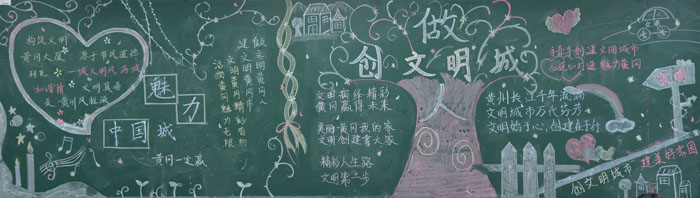 构筑文明
黄冈大厦
源于市民道德
砖瓦
城文明风满城
和谐情
文明具备
是黄州
魅力
中国城
黄冈一定赢
做文明黄冈人
建文明黄冈市
文明黄冈精彩有约
活力黄冈魅力无限
做文明人
创文明城
文明赢得精彩
黄冈赢得未来
美丽黄冈我的家
文明创建靠大家
精彩人生路
文明第一步
手牵手创建文明城市
心连心打造魅力黄冈
黄州长江千年流淌
文明城市万代芬芳
文明始于心,创建在于行
文明
创文明城市
建美好家园